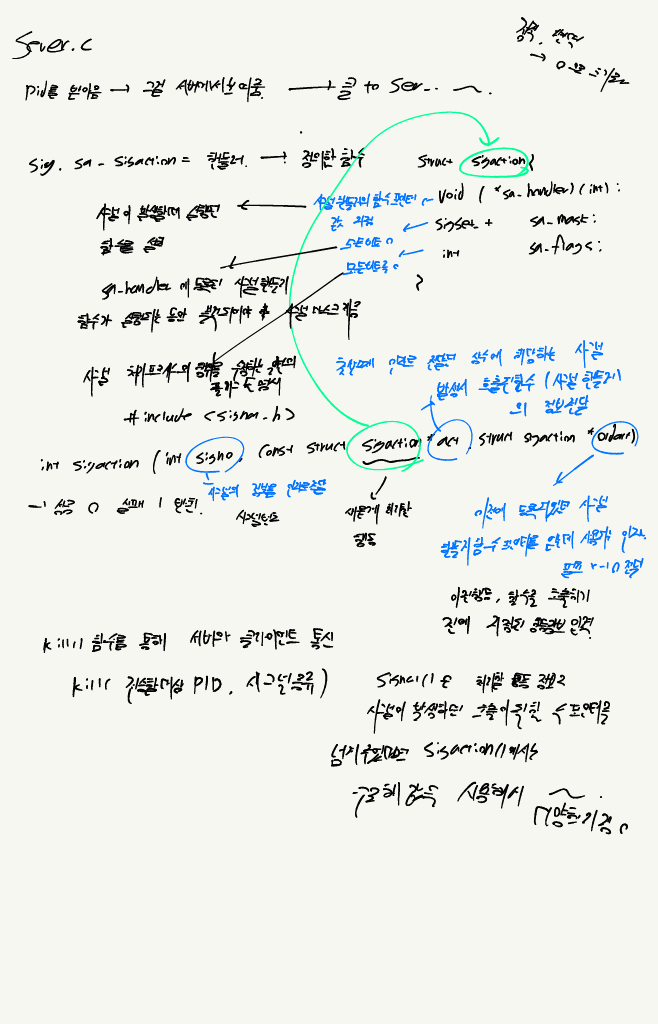 Sever.c
→ 0으로 초기화
pid를 받아옴 → 그걸 서버에서 보여줌. → 클 to Ser.. ~.
sig. sa_sigaction = 핸들러. → 정의한 함수
struct sigaction {
void (*sa_handler)(int);
sigset_t sa_mask;
int sa_flags;
}
시그널 핸들러의 함수 포인터
값 저장
모든 비트 0
모든 비트 0
시그널이 발생할때 실행될
함수를 설정
sa_handler에 등록된 시그널 핸들러
함수가 실행되는 동안 블럭되어야 할 시그널 마스크 제공
시그널
#include <signa.h>
첫번째 인자로 전달된 상수에 해당하는 시그널
발생시 호출될 함수 (시그널 핸들러)
의 정보 전달
int sigaction (int signo, const struct sigaction * act, struct sigaction * oldact)
시그널의 정보를 인자로 전달
시그널 번호
-1 실패
새롭게 처리할
행동
이전에 등록되었던 시그널
핸들러 함수 포인터를 얻는데 사용되는 인자.
필요 x → 0 전달
이전 행동, 함수를 호출하기
전에 지정된 행동 정보 입력.
kill() 함수를 통해 서버와 클라이언트 통신
kill( 전송할 대상 PID, 시그널 종류)
signal()은 처리할 행동 정보로
시그널이 발생하면 호출이 될 함수 포인터를
넘겨주었다면 sigaction()에서는
구조체 값을 사용해서 ~.